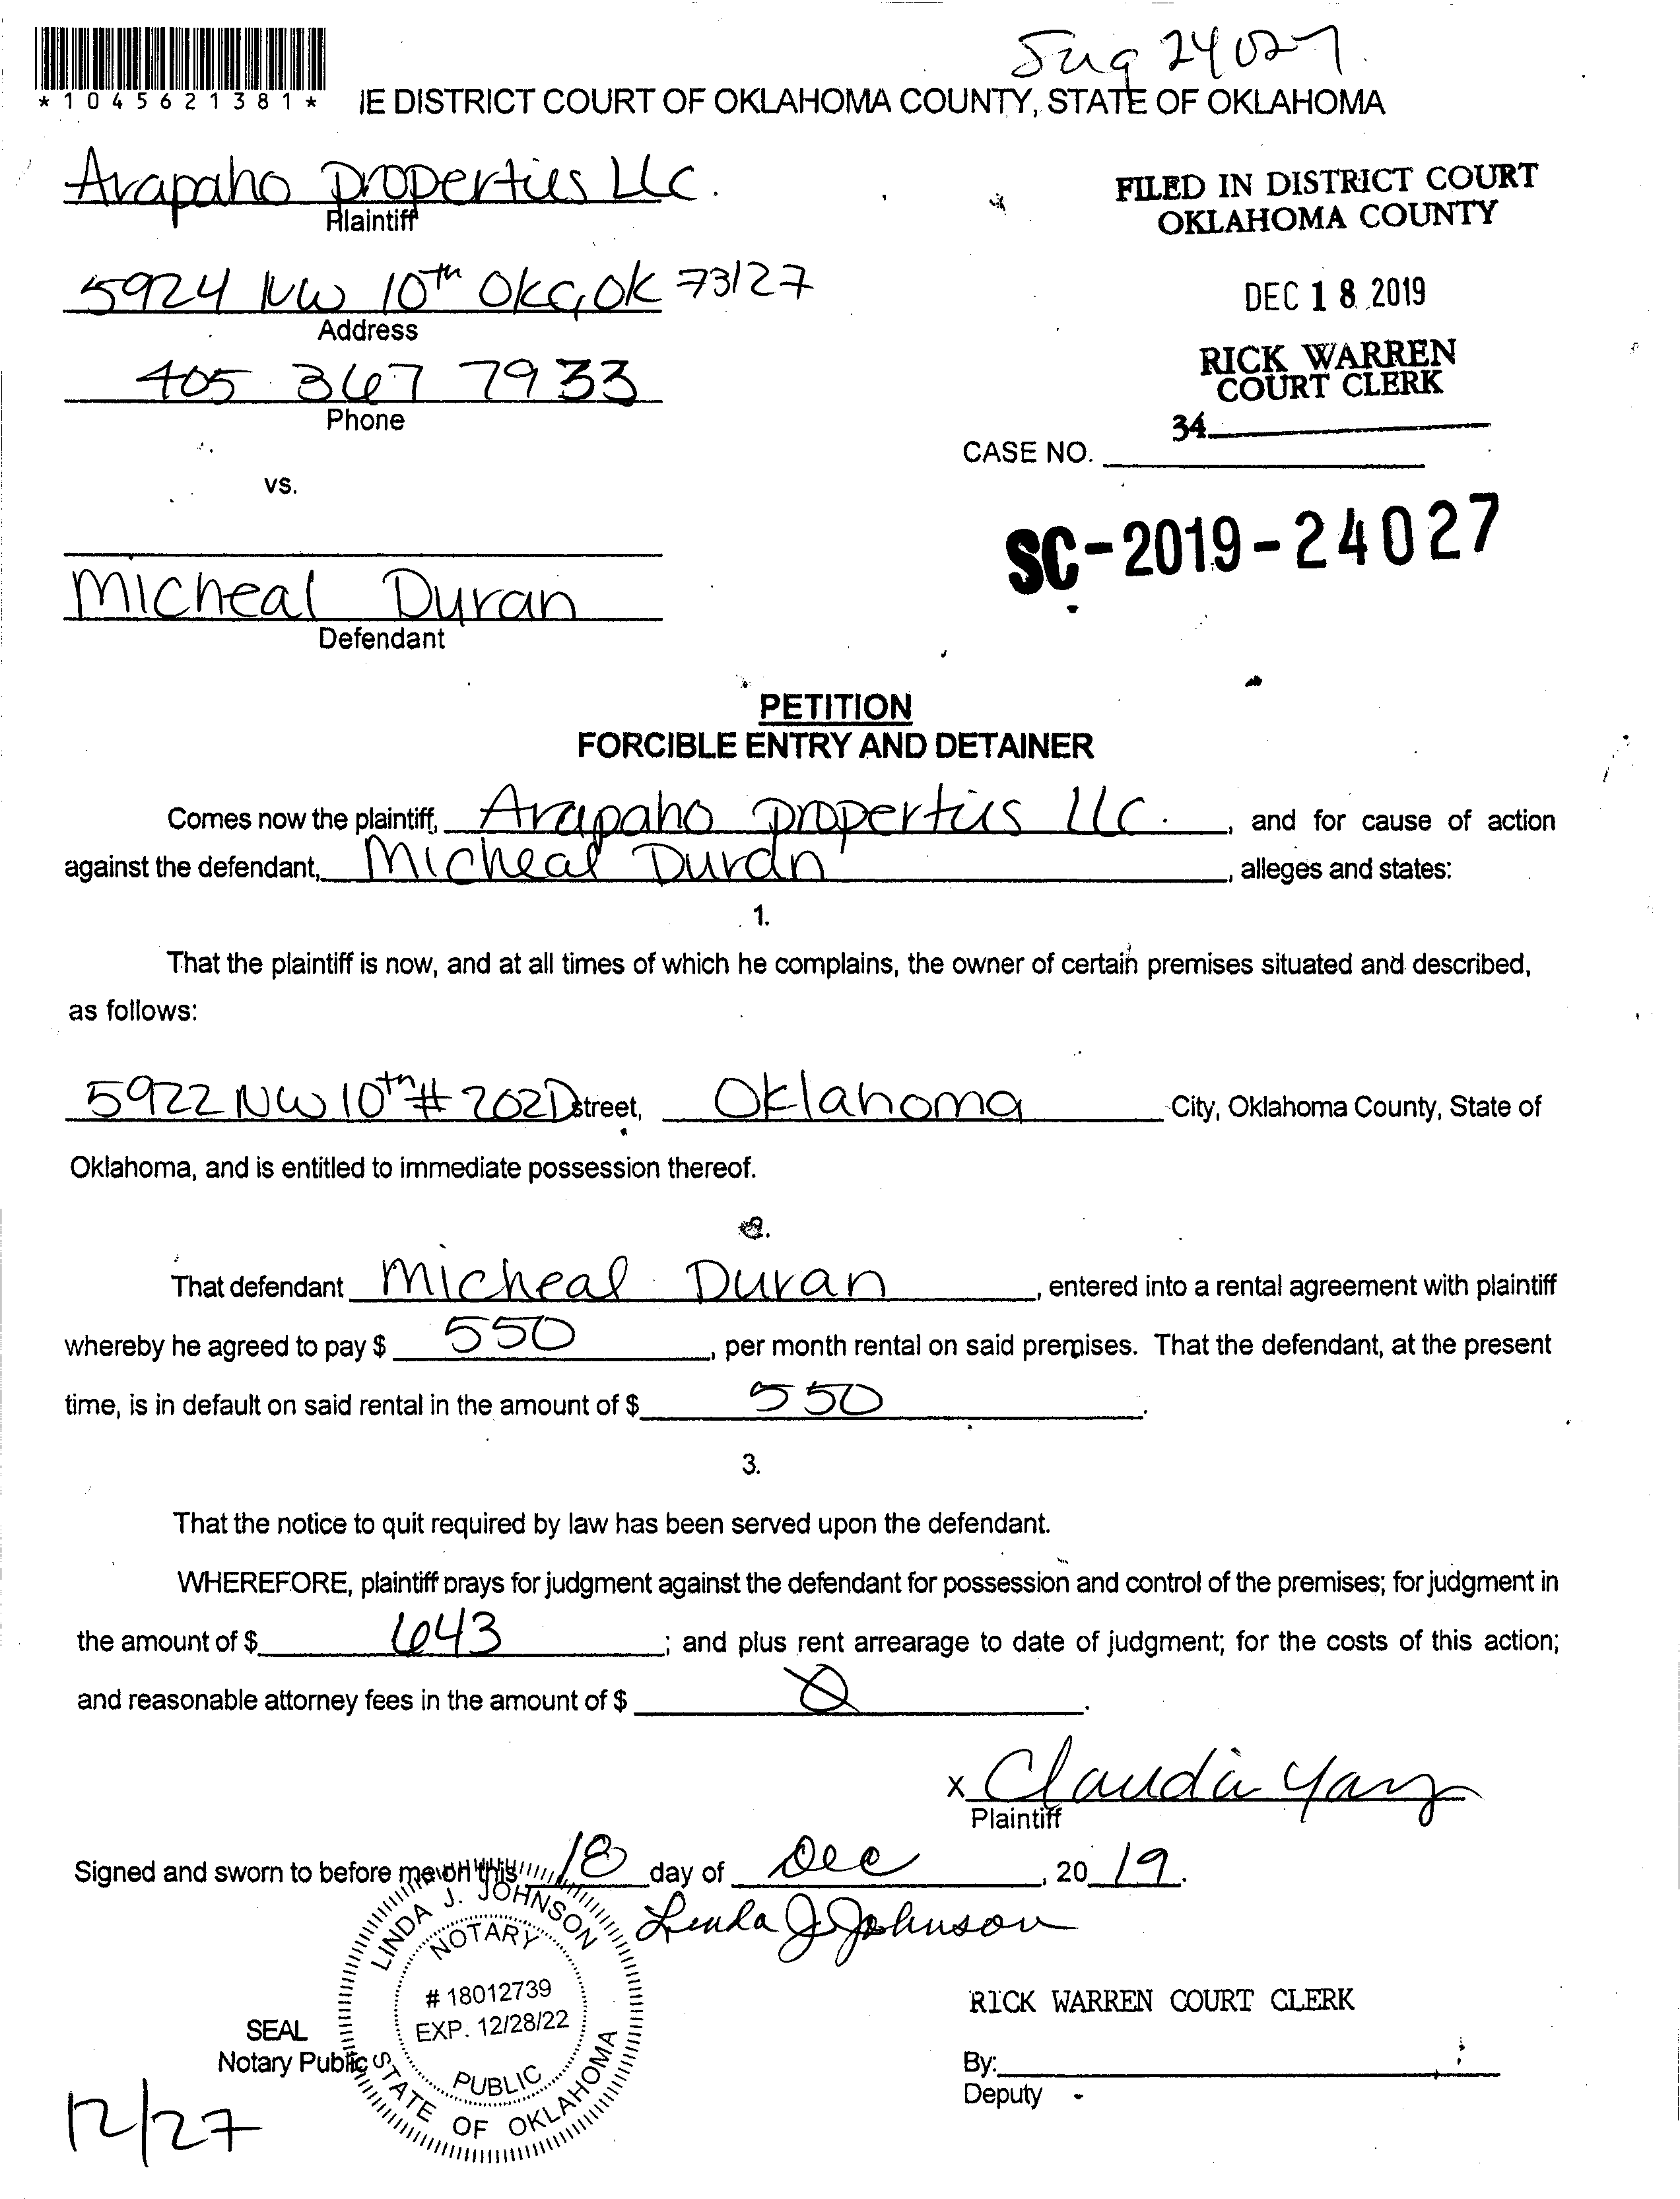 *1045621381*
24027
IE DISTRICT COURT OF OKLAHOMA COUNTY, STATE OF OKLAHOMA
Arapaho properties LLC.
Plaintiff
FILED IN DISTRICT COURT
OKLAHOMA COUNTY
5924 NW 10th OKC, OK 73127
Address
DEC 18 2019
405 367 7933
Phone
RICK WARREN
COURT CLERK
34
CASE NO.
vs.
SC-2019-24027
Micheal Duran
Defendant
PETITION
FORCIBLE ENTRY AND DETAINER
Comes now the plaintiff, Arapaho properties LLC. , and for cause of action
against the defendant, Micheal Duran , alleges and states:
1.
That the plaintiff is now, and at all times of which he complains, the owner of certain premises situated and described,
as follows:
5922 NW 10th # 202D street, Oklahoma City, Oklahoma County, State of
Oklahoma, and is entitled to immediate possession thereof.
2.
That defendant Micheal Duran , entered into a rental agreement with plaintiff
whereby he agreed to pay $ 550 , per month rental on said premises. That the defendant, at the present
time, is in default on said rental in the amount of $ 550 .
3.
That the notice to quit required by law has been served upon the defendant.
WHEREFORE, plaintiff prays for judgment against the defendant for possession and control of the premises; for judgment in
the amount of $ 643 ; and plus rent arrearage to date of judgment; for the costs of this action;
and reasonable attorney fees in the amount of $ 0 .
x Claudia
Plaintiff
Signed and sworn to before me on this 18 day of Dec , 20 19 .
Linda J Johnson
LINDA J. JOHNSON
NOTARY
# 18012739
EXP. 12/28/22
PUBLIC
STATE OF OKLAHOMA
SEAL
Notary Public
RICK WARREN COURT CLERK
By:
Deputy
12/27